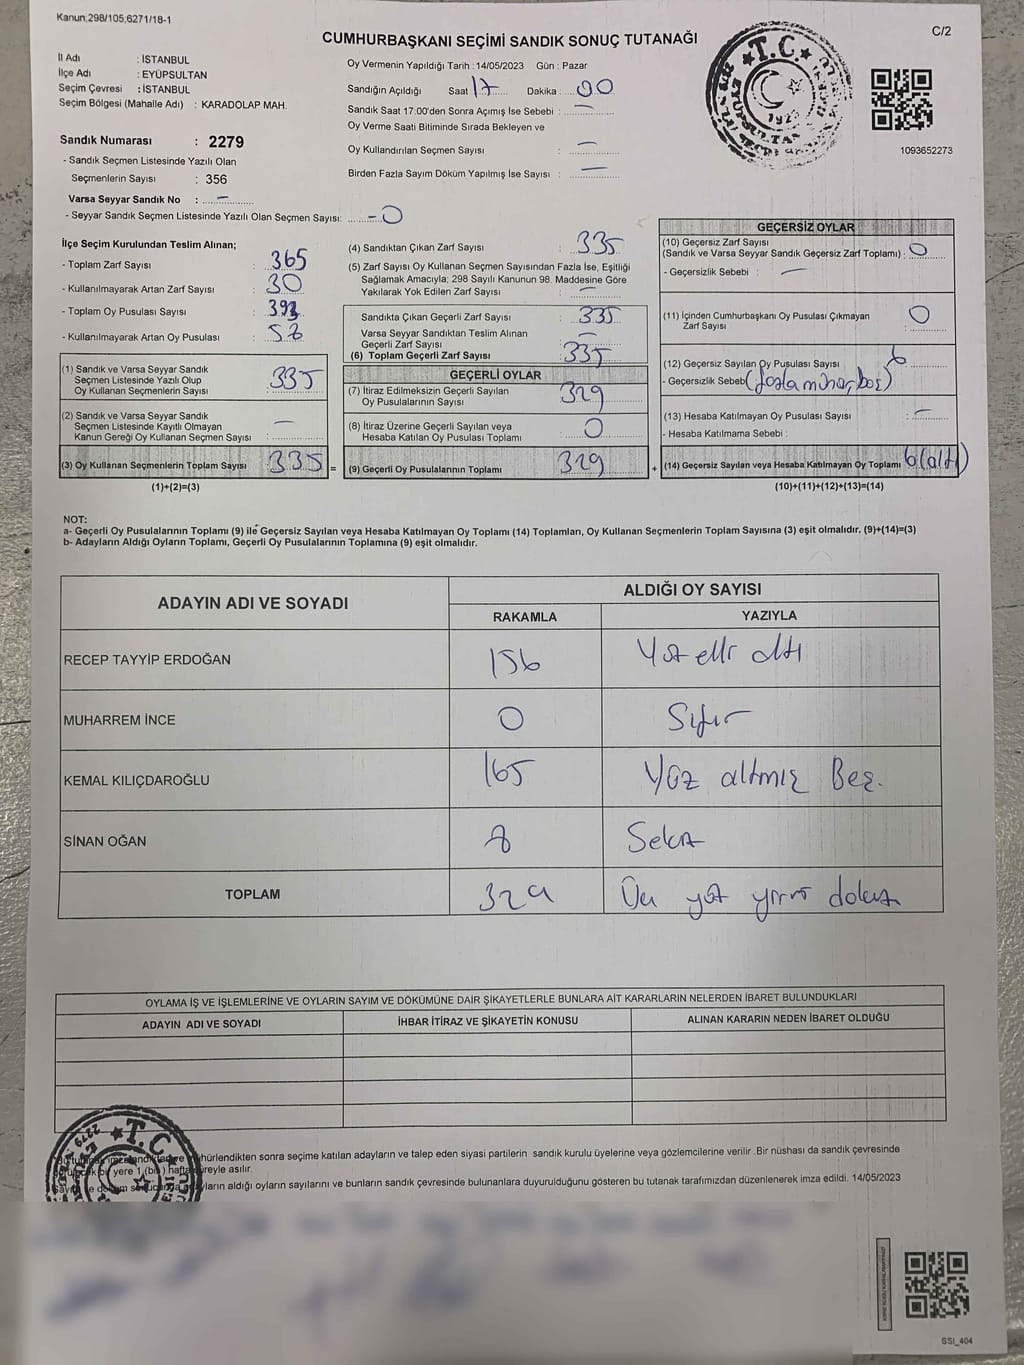 Kanun;298/105;6271/18-1
C/2
CUMHURBAŞKANI SEÇİMİ SANDIK SONUÇ TUTANAĞI
İl Adı : İSTANBUL
İlçe Adı : EYÜPSULTAN
Seçim Çevresi : İSTANBUL
Seçim Bölgesi (Mahalle Adı) : KARADOLAP MAH.
Sandık Numarası : 2279
- Sandık Seçmen Listesinde Yazılı Olan
Seçmenlerin Sayısı : 356
Varsa Seyyar Sandık No : -
- Seyyar Sandık Seçmen Listesinde Yazılı Olan Seçmen Sayısı: -0
Oy Vermenin Yapıldığı Tarih : 14/05/2023 Gün : Pazar
Sandığın Açıldığı Saat 17 Dakika : 00
Sandık Saat 17:00'den Sonra Açımış İse Sebebi : -
Oy Verme Saati Bitiminde Sırada Bekleyen ve
Oy Kullandırılan Seçmen Sayısı : -
Birden Fazla Sayım Döküm Yapılmış İse Sayısı : -
T.C.
1923
EYÜPSULTAN
1093652273
İlçe Seçim Kurulundan Teslim Alınan;
- Toplam Zarf Sayısı : 365
- Kullanılmayarak Artan Zarf Sayısı : 30
- Toplam Oy Pusulası Sayısı :
- Kullanılmayarak Artan Oy Pusulası : 58
(1) Sandık ve Varsa Seyyar Sandık
Seçmen Listesinde Yazılı Olup
Oy Kullanan Seçmenlerin Sayısı : 335
(2) Sandık ve Varsa Seyyar Sandık
Seçmen Listesinde Kayıtlı Olmayan
Kanun Gereği Oy Kullanan Seçmen Sayısı : -
(3) Oy Kullanan Seçmenlerin Toplam Sayısı 335 =
(1)+(2)=(3)
(4) Sandıktan Çıkan Zarf Sayısı : 335
(5) Zarf Sayısı Oy Kullanan Seçmen Sayısından Fazla İse, Eşitliği
Sağlamak Amacıyla; 298 Sayılı Kanunun 98. Maddesine Göre
Yakılarak Yok Edilen Zarf Sayısı : -
Sandıkta Çıkan Geçerli Zarf Sayısı : 335
Varsa Seyyar Sandıktan Teslim Alınan
Geçerli Zarf Sayısı : -
(6) Toplam Geçerli Zarf Sayısı 335
GEÇERLİ OYLAR
(7) İtiraz Edilmeksizin Geçerli Sayılan
Oy Pusulalarının Sayısı : 329
(8) İtiraz Üzerine Geçerli Sayılan veya
Hesaba Katılan Oy Pusulası Toplamı : 0
(9) Geçerli Oy Pusulalarının Toplamı 329 +
GEÇERSİZ OYLAR
(10) Geçersiz Zarf Sayısı
(Sandık ve Varsa Seyyar Sandık Geçersiz Zarf Toplamı) : 0
- Geçersizlik Sebebi : -
(11) İçinden Cumhurbaşkanı Oy Pusulası Çıkmayan
Zarf Sayısı : 0
(12) Geçersiz Sayılan Oy Pusulası Sayısı 6
- Geçersizlik Sebebi (fazla mühür, boş)
(13) Hesaba Katılmayan Oy Pusulası Sayısı : -
- Hesaba Katılmama Sebebi :
(14) Geçersiz Sayılan veya Hesaba Katılmayan Oy Toplamı 6 (altı)
(10)+(11)+(12)+(13)=(14)
NOT:
a- Geçerli Oy Pusulalarının Toplamı (9) ile Geçersiz Sayılan veya Hesaba Katılmayan Oy Toplamı (14) Toplamları, Oy Kullanan Seçmenlerin Toplam Sayısına (3) eşit olmalıdır. (9)+(14)=(3)
b- Adayların Aldığı Oyların Toplamı, Geçerli Oy Pusulalarının Toplamına (9) eşit olmalıdır.
ADAYIN ADI VE SOYADI ALDIĞI OY SAYISI
RAKAMLA YAZIYLA
RECEP TAYYİP ERDOĞAN 156 Yüz elli altı
MUHARREM İNCE 0 Sıfır
KEMAL KILIÇDAROĞLU 165 Yüz altmış Beş.
SİNAN OĞAN 8 Sekiz
TOPLAM 329 Üç yüz yirmi dokuz
OYLAMA İŞ VE İŞLEMLERİNE VE OYLARIN SAYIM VE DÖKÜMÜNE DAİR ŞİKAYETLERLE BUNLARA AİT KARARLARIN NELERDEN İBARET BULUNDUKLARI
ADAYIN ADI VE SOYADI İHBAR İTİRAZ VE ŞİKAYETİN KONUSU ALINAN KARARIN NEDEN İBARET OLDUĞU
T.C.
2279
hürlendikten sonra seçime katılan adayların ve talep eden siyasi partilerin sandık kurulu üyelerine veya gözlemcilerine verilir. Bir nüshası da sandık çevresinde
yere 1 (bir) hafta süreyle asılır.
ların aldığı oyların sayılarını ve bunların sandık çevresinde bulunanlara duyurulduğunu gösteren bu tutanak tarafımızdan düzenlenerek imza edildi. 14/05/2023
SSI_404